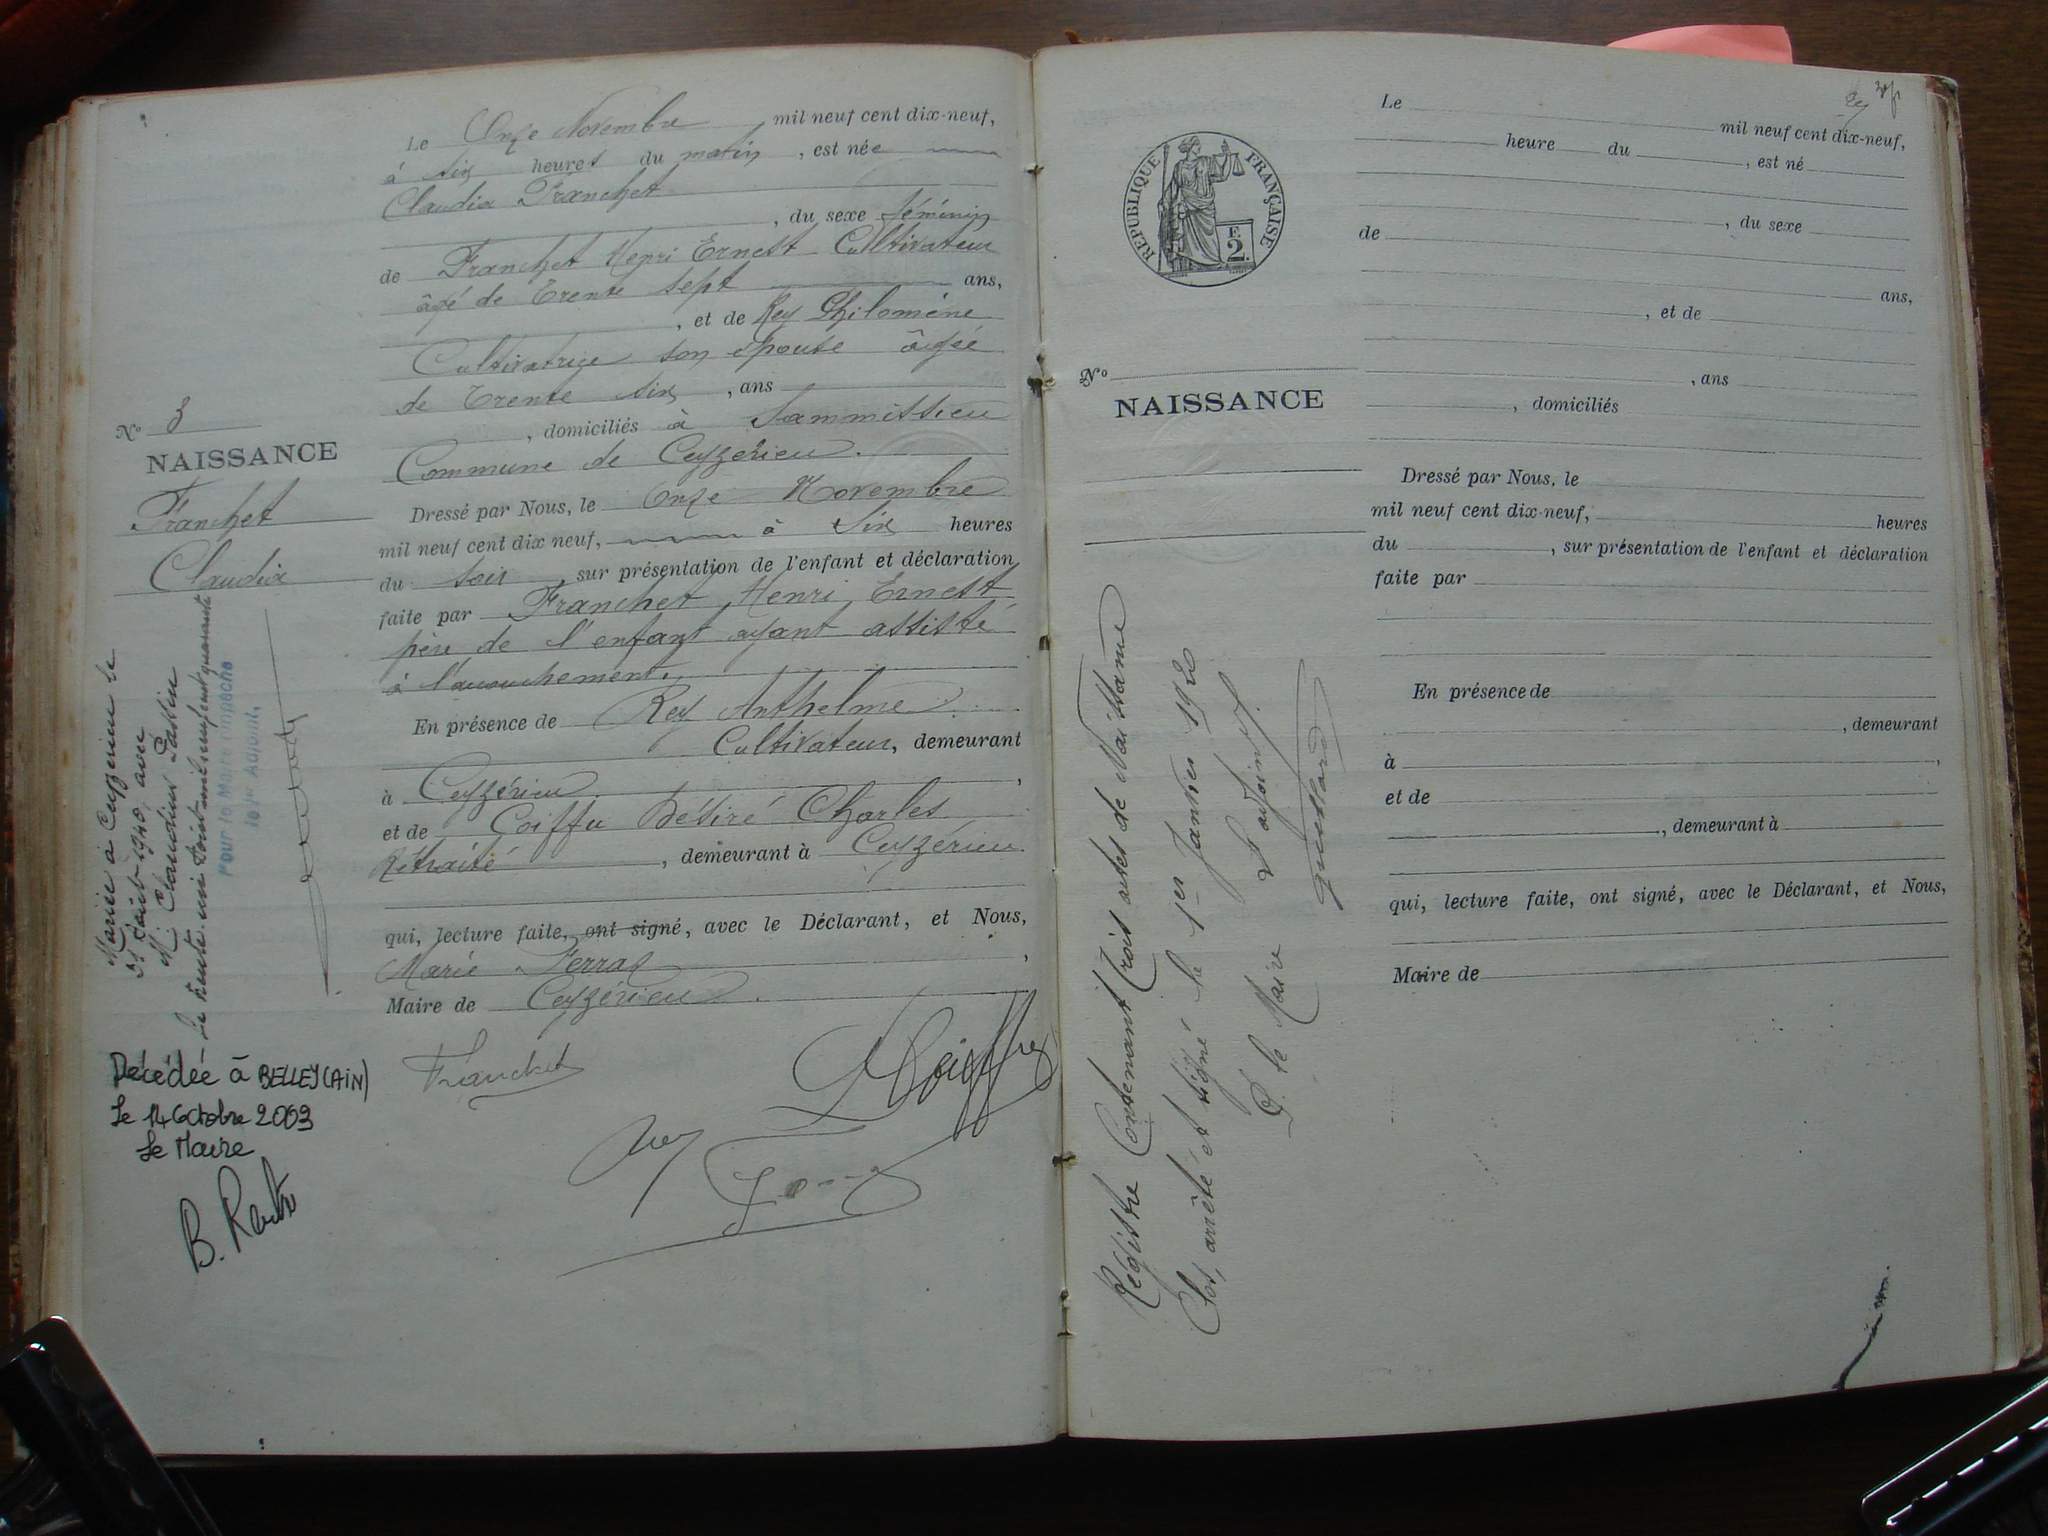 Le Onze Novembre mil neuf cent dix-neuf,
à six heures du matin, est née
Claudia Franchet
, du sexe féminin
de Franchet Henri Ernest Cultivateur
âgé de Trente sept ans,
, et de Rey Philomène
Cultivatrice son épouse âgée
de Trente six, ans
, domiciliés à Sammissieu
Commune de Ceyzérieu.
Dressé par Nous, le Onze Novembre
mil neuf cent dix neuf, à Six heures
du soir, sur présentation de l'enfant et déclaration
faite par Franchet Henri Ernest
père de l'enfant ayant assisté
à l'accouchement.
En présence de Rey Anthelme
Cultivateur, demeurant
à Ceyzérieu,
et de Coiffu Désiré Charles
Retraité, demeurant à Ceyzérieu
qui, lecture faite, ont signé, avec le Déclarant, et Nous,
Marie Ferraz,
Maire de Ceyzérieu.
Franchet
Rey
N° 3
NAISSANCE
Franchet
Claudia
Mariée à Ceyzérieu le
31 Août 1940, avec
M. Claudius
Le trente un Août mil neuf cent quarante
Pour le Maire empêché
le 1er Adjoint,
Décédée à BELLEY (AIN)
Le 14 Octobre 2003
Le Maire
REPUBLIQUE FRANÇAISE
F.
2.
N°
NAISSANCE
Registre Contenant Trois actes de Naissance
Clos, arrêté et signé le 1er Janvier 1920
P. le Maire L'adjoint
Le mil neuf cent dix-neuf,
heure du, est né
, du sexe
de
ans,
, et de
, ans
, domiciliés
Dressé par Nous, le
mil neuf cent dix-neuf, heures
du, sur présentation de l'enfant et déclaration
faite par
En présence de
, demeurant
à,
et de
, demeurant à
qui, lecture faite, ont signé, avec le Déclarant, et Nous,
Maire de